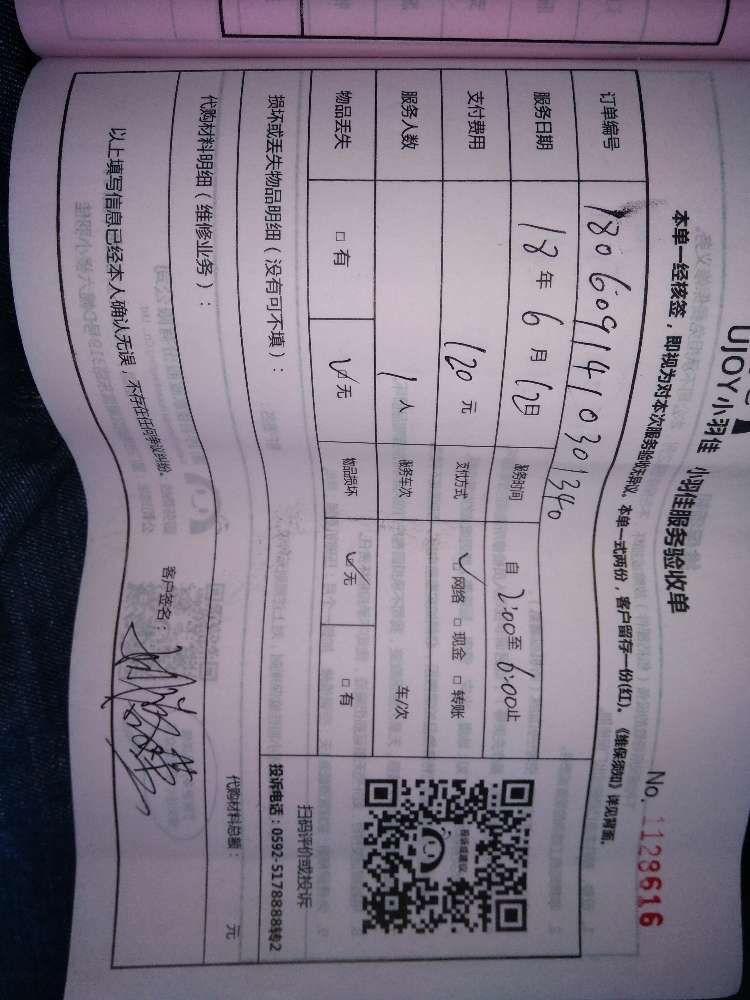 UJOY小羽佳 小羽佳服务验收单
No. 1128616
本单一经核签，即视为对本次服务验收无异议。本单一式两份，客户留存一份(红)。《维保须知》详见背面。
订单编号 180609141030 1340
服务日期 18年6月12日 服务时间 自2:00至6:00止
支付费用 120元 支付方式 ✓网络 □现金 □转账
服务人数 1人 服务车次 车/次
物品丢失 □有 ✓无 物品损坏 ✓无 □有
投诉或建议
扫码评价或投诉
投诉电话：0592-5178888转2
损坏或丢失物品明细（没有可不填）：
代购材料明细（维修业务）： 代购材料总额： 元
以上填写信息已经本人确认无误，不存在任何争议纠纷。 客户签名：